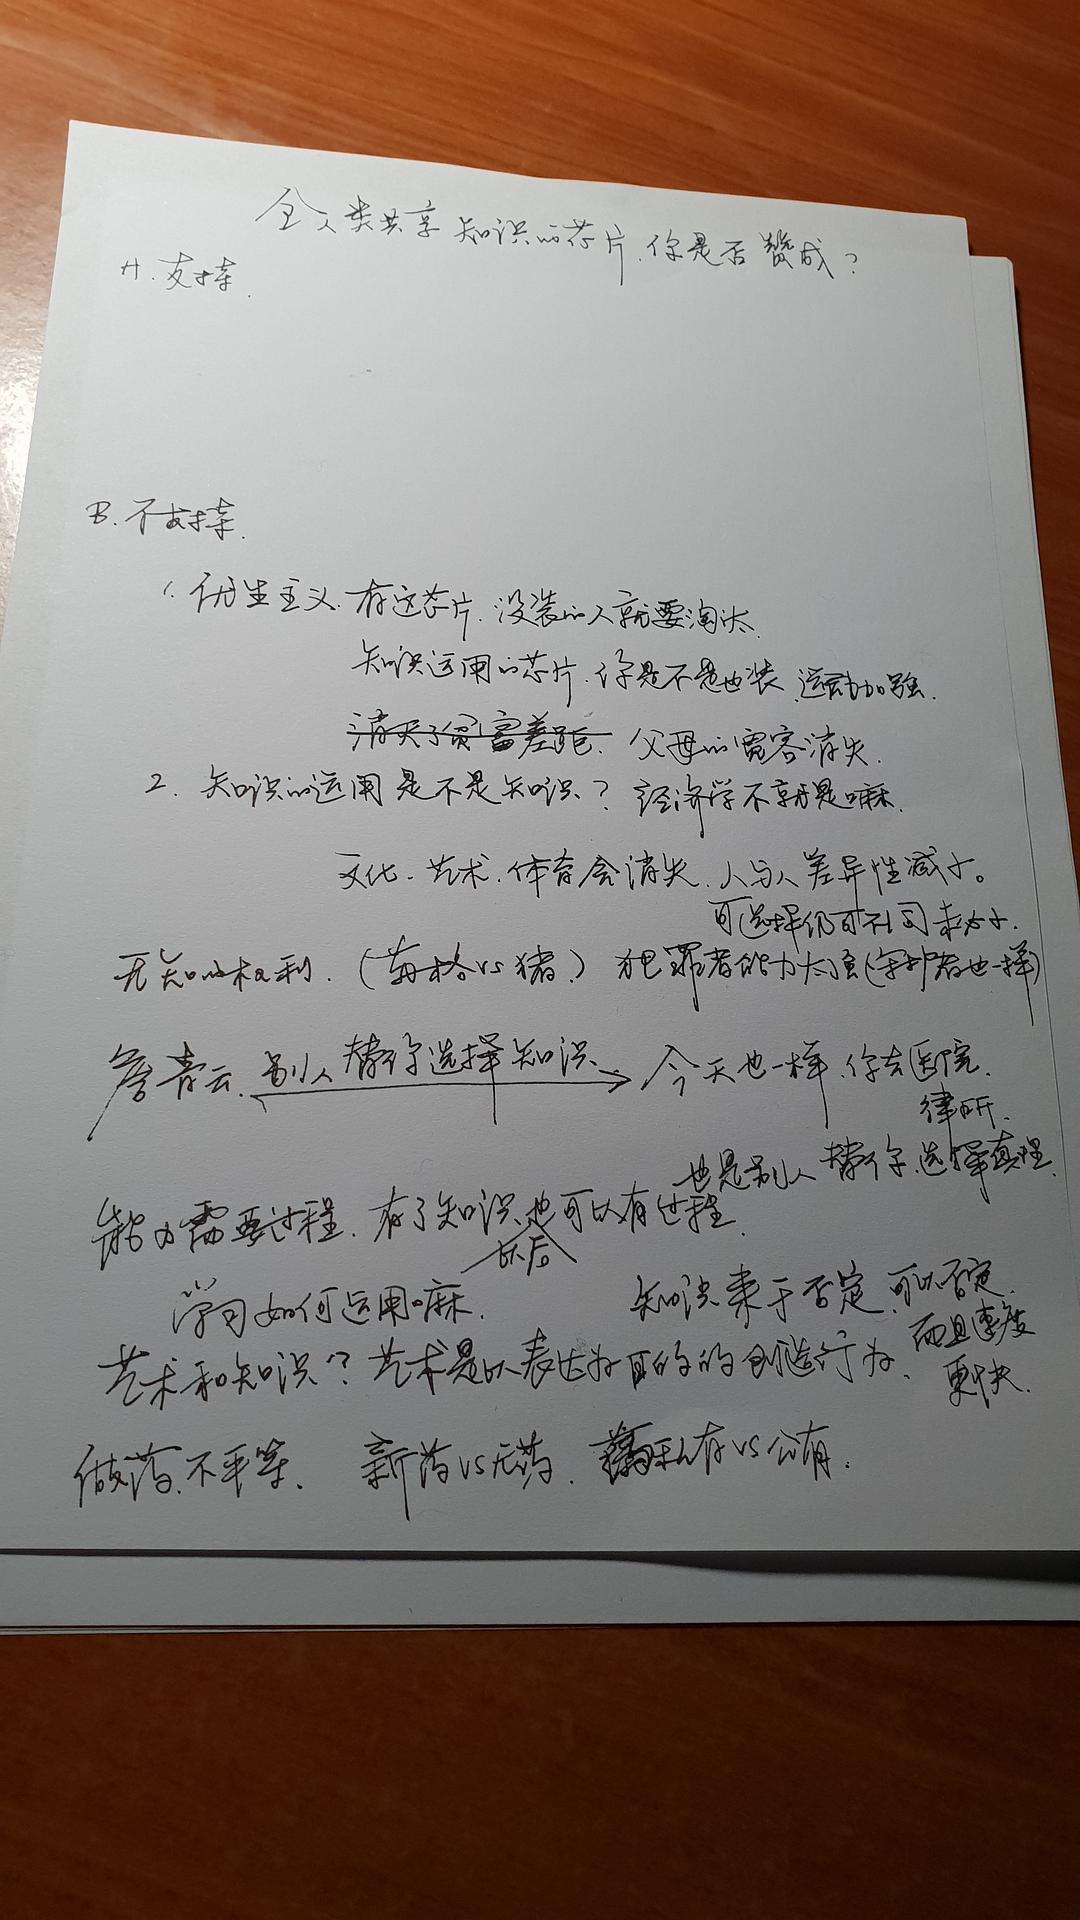 全人类共享知识的芯片，你是否赞成？
A. 支持.
B. 不支持.
1. 优生主义. 有这芯片. 没装的人就要淘汰.
知识运用的芯片. 你是不是也装. 运动加强.
消灭了贫富差距. 父母的宽容消失.
2. 知识的运用是不是知识？经济学不就是嘛.
文化、艺术、体育会消失. 人与人差异性减少。
可选择仍可不同
无知的权利. (苏格vs猪) 犯罪者能力太强(守护者也一样)
詹青云. 别人替你选择知识. → 今天也一样. 你去医院.
律所.
也是别人替你选择真理.
能力需要过程. 有了知识以后也可以有过程.
学习如何运用嘛.
知识来于否定. 可以否定.
而且速度
更快.
艺术和知识？艺术是以表达为目的的创造行为.
做药. 不平等. 新药vs无药. 私有vs公有.